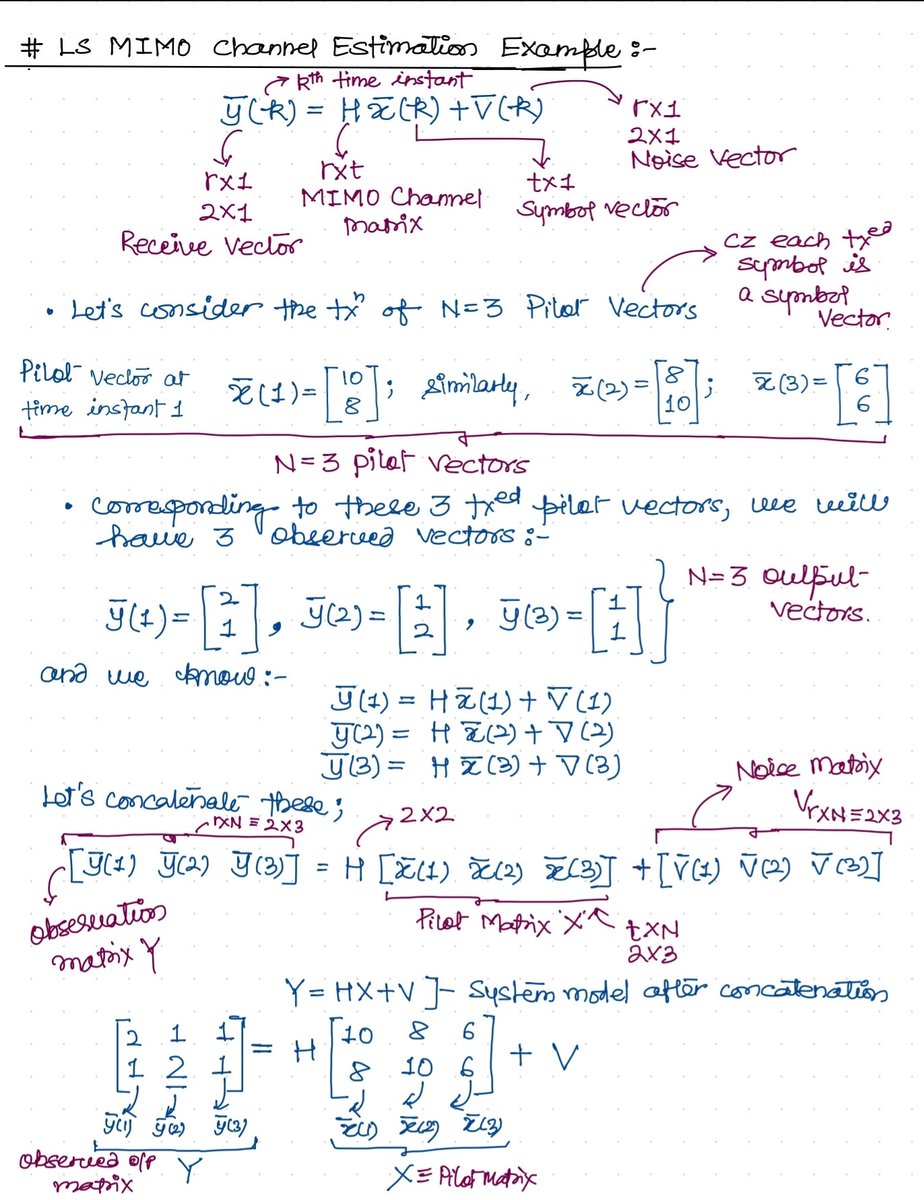 # LS MIMO Channel Estimation Example :-
Kth time instant
ȳ(k) = H x̄(k) + V̄(k)
rx1
2x1
Receive Vector
rxt
MIMO Channel
matrix
tx1
Symbol vector
rx1
2x1
Noise Vector
• Let's consider the txⁿ of N=3 Pilot Vectors
cz each txed
symbol is
a symbol
Vector.
Pilot Vector at
time instant 1
x̄(1) = [10 8] ; similarly, x̄(2) = [8 10] ; x̄(3) = [6 6]
N=3 pilot vectors
• corresponding to these 3 txed pilot vectors, we will
have 3 observed vectors :-
ȳ(1) = [2 1] , ȳ(2) = [1 2] , ȳ(3) = [1 1]
N=3 output
vectors.
and we know :-
ȳ(1) = H x̄(1) + V̄(1)
ȳ(2) = H x̄(2) + V̄(2)
ȳ(3) = H x̄(3) + V̄(3)
Let's concatenate these;
rxN ≡ 2x3
2x2
Noise Matrix
VrxN ≡ 2x3
[ȳ(1) ȳ(2) ȳ(3)] = H [x̄(1) x̄(2) x̄(3)] + [V̄(1) V̄(2) V̄(3)]
observation
matrix Y
Pilot Matrix 'X'
txN
2x3
Y = HX+V ]- System model after concatenation
[2 1 1
1 2 1] = H [10 8 6
8 10 6] + V
ȳ(1) ȳ(2) ȳ(3)
x̄(1) x̄(2) x̄(3)
Observed o/p
matrix
Y
X ≡ Pilot Matrix